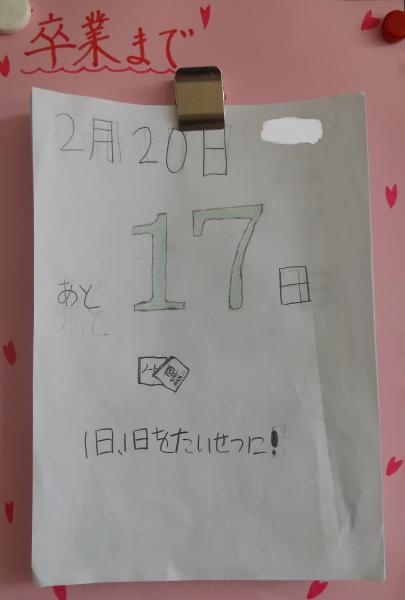 卒業まで
2月20日
あと 17日
ノート
1日、1日をたいせつに!